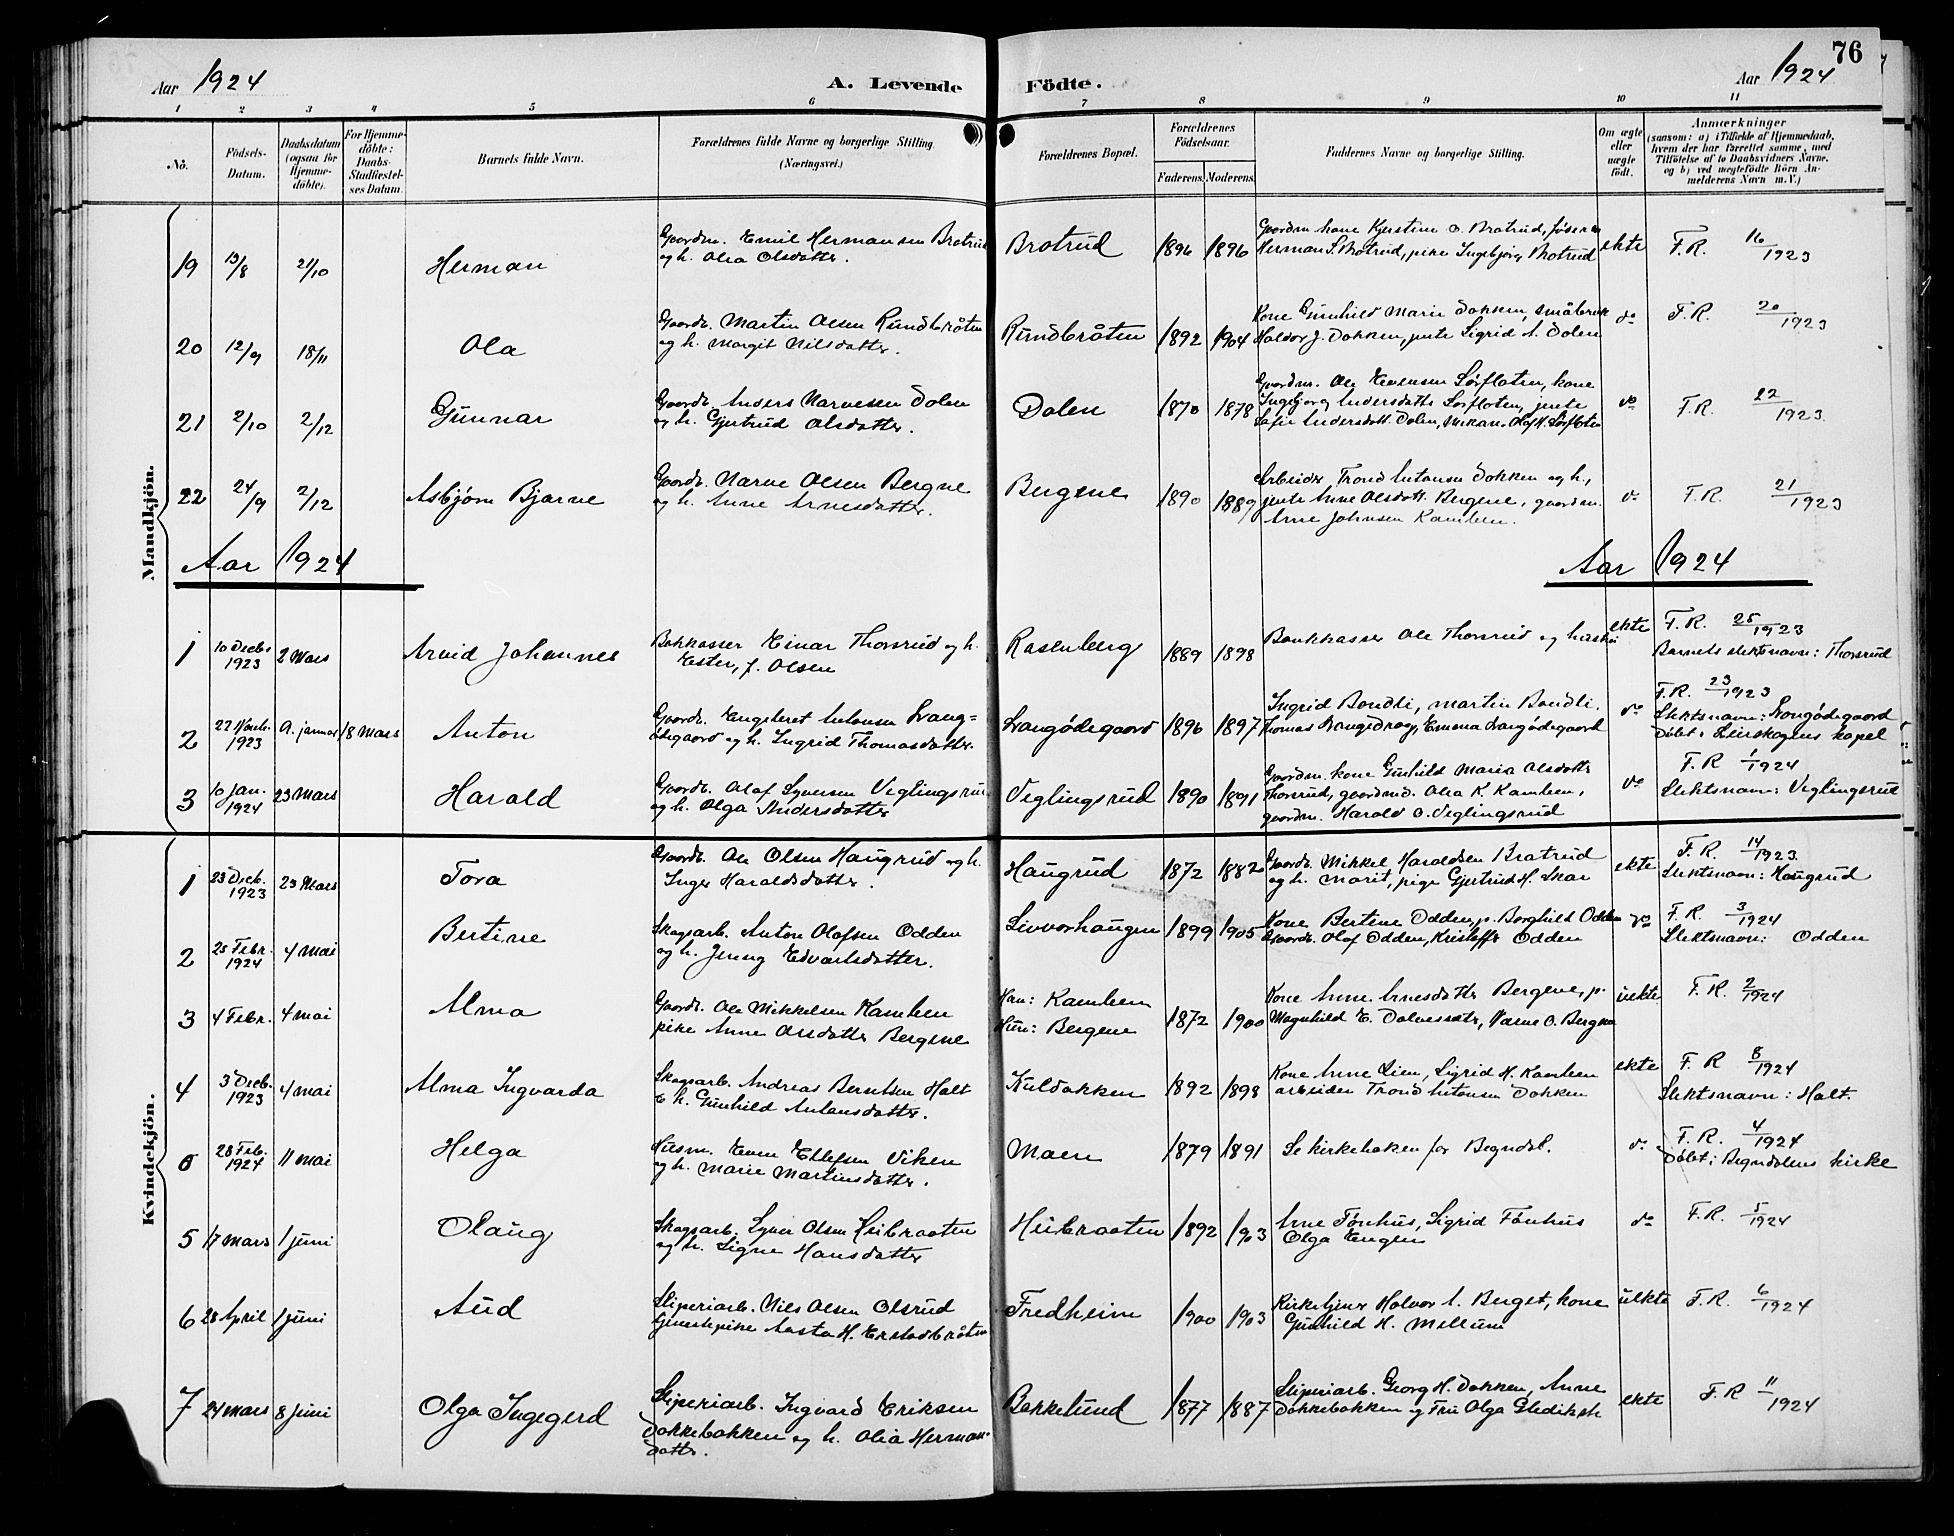 Aar 1924 A. Levende Födte. Aar 1924 76
1 2 3 4 5 6 7 8 9 10 11
No. Födsels-Datum. Daabsdatum (ogsaa for Hjemme-döbte). For Hjemme-döbte: Daabs-Stadfæstel-ses Datum. Barnets fulde Navn. Forældrenes fulde Navne og borgerlige Stilling. (Næringsvei.) Forældrenes Bopæl. Forældrenes Födselsaar. Faderens. Moderens. Faddernes Navne og borgerlige Stilling. Om ægte eller uægte födt. Anmærkninger (saasom: a) i Tilfælde af Hjemmedaab, hvem der har forrettet samme, med Tilföielse af to Daabsvidners Navne. og b) ved uægtefödte Börn Anmelderens Navn m.V.)
Mandkjön.
19 13/8 21/10 Herman Gaardm. Emil Hermansen Brotrud Brotrud 1896 1896 Gaardm. kone Kjerstine O. Brotrud, ekte F.R. 16/1923
og h. Olea Olsdatter. Herman S. Brotrud, pike Ingebjørg Brotrud
20 12/9 18/11 Ola Gaardb. Martin Olsen Rundbråten Rundbråten 1892 1904 Kone Gunhild Marie Dokken, småbruk. do F.R. 20/1923
og h. Margit Nilsdatter. Halvor J. Dokken, jente Sigrid A. Dolen
21 2/10 2/12 Gunnar Gaardb. Anders Narvesen Dolen Dolen 1870 1878 Gaardm. Ole Evensen Sørfloten, kone do F.R. 22/1923.
og h. Gjertrud Olsdatter. Ingeborg Andersdatter Sørfloten, jente
Sofie Andersdatt. Dolen, Olaf H. Sørfloten
22 24/9 2/12 Asbjørn Bjarne Gaardb. Narve Olsen Bergne Bergene 1890 1889 Arbeider Trond Antonsen Dokken og h., do F.R. 21/1923
og h. Anne Arnesdatter. jente Anne Olsdatt. Bergene, gaardm.
Arne Johnsen Kamben.
Aar 1924 Aar 1924
1 10 Decbr 1923 2 Mars Arvid Johannes Bokkasser Einar Thorsrud og h. Rosenberg 1889 1898 Bankkasser Ole Thorsrud og hustru ekte F.R. 25/1923
Ester, f. Olsen Barnets slektsnavn: Thorsrud
2 22 Novb. 1923 9. januar 18 Mars Anton Gaardb. Engebret Antonsen Svang= Svangødegaard 1896 1897 Ingrid Bondli, Martin Bondli. do F.R. 23/1923
ødegaard og h. Ingrid Thomasdatter. Thomas Vangedrag, Emma Svangødegaard Slektsnavn: Svangødegaard
Døbt i Leirskogens kapel
3 10 jan. 1924 23 Mars Harald Gaardb. Olaf Syversen Veglingsrud Veglingsrud 1890 1891 Gaardm. kone Gunhild Maria Olsdatter do F.R 1/1924
og h. Olga Andersdatter Thorsrud, gaardmd. Olea K. Kamben, Slektsnavn: Veglingsrud
gaardm. Harald O. Veglingsrud
Kvindekjön.
1 23 Decb. 1923 23 Mars Tora Gaardb. Ole Olsen Haugrud og h. Haugrud 1872 1882 Gaardb. Mikkel Haraldsen Bratrud ekte F.R. 14/1923.
Inger Haraldsdatter. og h. Marit, pige Gjertrud H. Skar Slektsnavn: Haugrud
2 25 Febr. 1924 4 mai Bertine Skogsarb. Anton Olafsen Odden Livvorhaugen 1899 1905 Kone Bertine Odden, p. Borghild Odden do F.R. 3/1924
og h. Jenny Edvartsdatter. Gaardb. Olaf Odden, Kristoffer Odden Slektsnavn: Odden
3 4 Febr. 4 mai Alma Gaardb. Ole Mikkelsen Kamben Han: Kamben 1872 1900 Kone Anne Arnesdatter Bergene, p. uekte F.R. 2/1924
pike Anne Olsdatter Bergene Hun: Bergene Magnhild E. Dalvessætr, Narve O. Bergene
4 3 Decb. 1923 4 mai Alma Ingvarda Skogsarb. Andreas Berntsen Holt Kuldokken 1892 1898 Kone Anne Lien, Sigrid H. Kamben ekte F.R 8/1924
& h. Gunhild Antonsdatter. arbeider Trond Antonsen Dokken Slektsnavn: Holt.
5 28 Feb. 1924 11 mai Helga Husm. Even Ellefsen Viken Moen 1879 1891 Se kirkeboken for Begndal. do F.R. 4/1924
og h. Marie Martinsdatter. Døbt i Begndalens kirke
5 17 mars 1 juni Olaug Skogsarb. Syver Olsen Heibraaten Heibraaten 1892 1903 Arne Fønhus, Sigrid Fønhus do F.R. 5/1924
og h. Signe Hansdatter Olga Engen
6 28 April 1 juni Aud Sliperiarb. Nils Olsen Olsrud Fredheim 1900 1903 Kirketjener Halvor A. Berget, kone uekte F.R. 6/1924
Tjenestepike Aasta H. Erstadbråten Gunhild H. Mellum
7 24 mars 8 juni Olga Ingegerd Sliperiarb. Ingvard Eriksen Bakkelund 1877 1887 Sliperiarb. Georg H. Dokken, Anne ekte F.R 11/1924
Dokkebakken og h. Olea Herman= Dokkebakken og Fru Olga Gleditsch
datter.